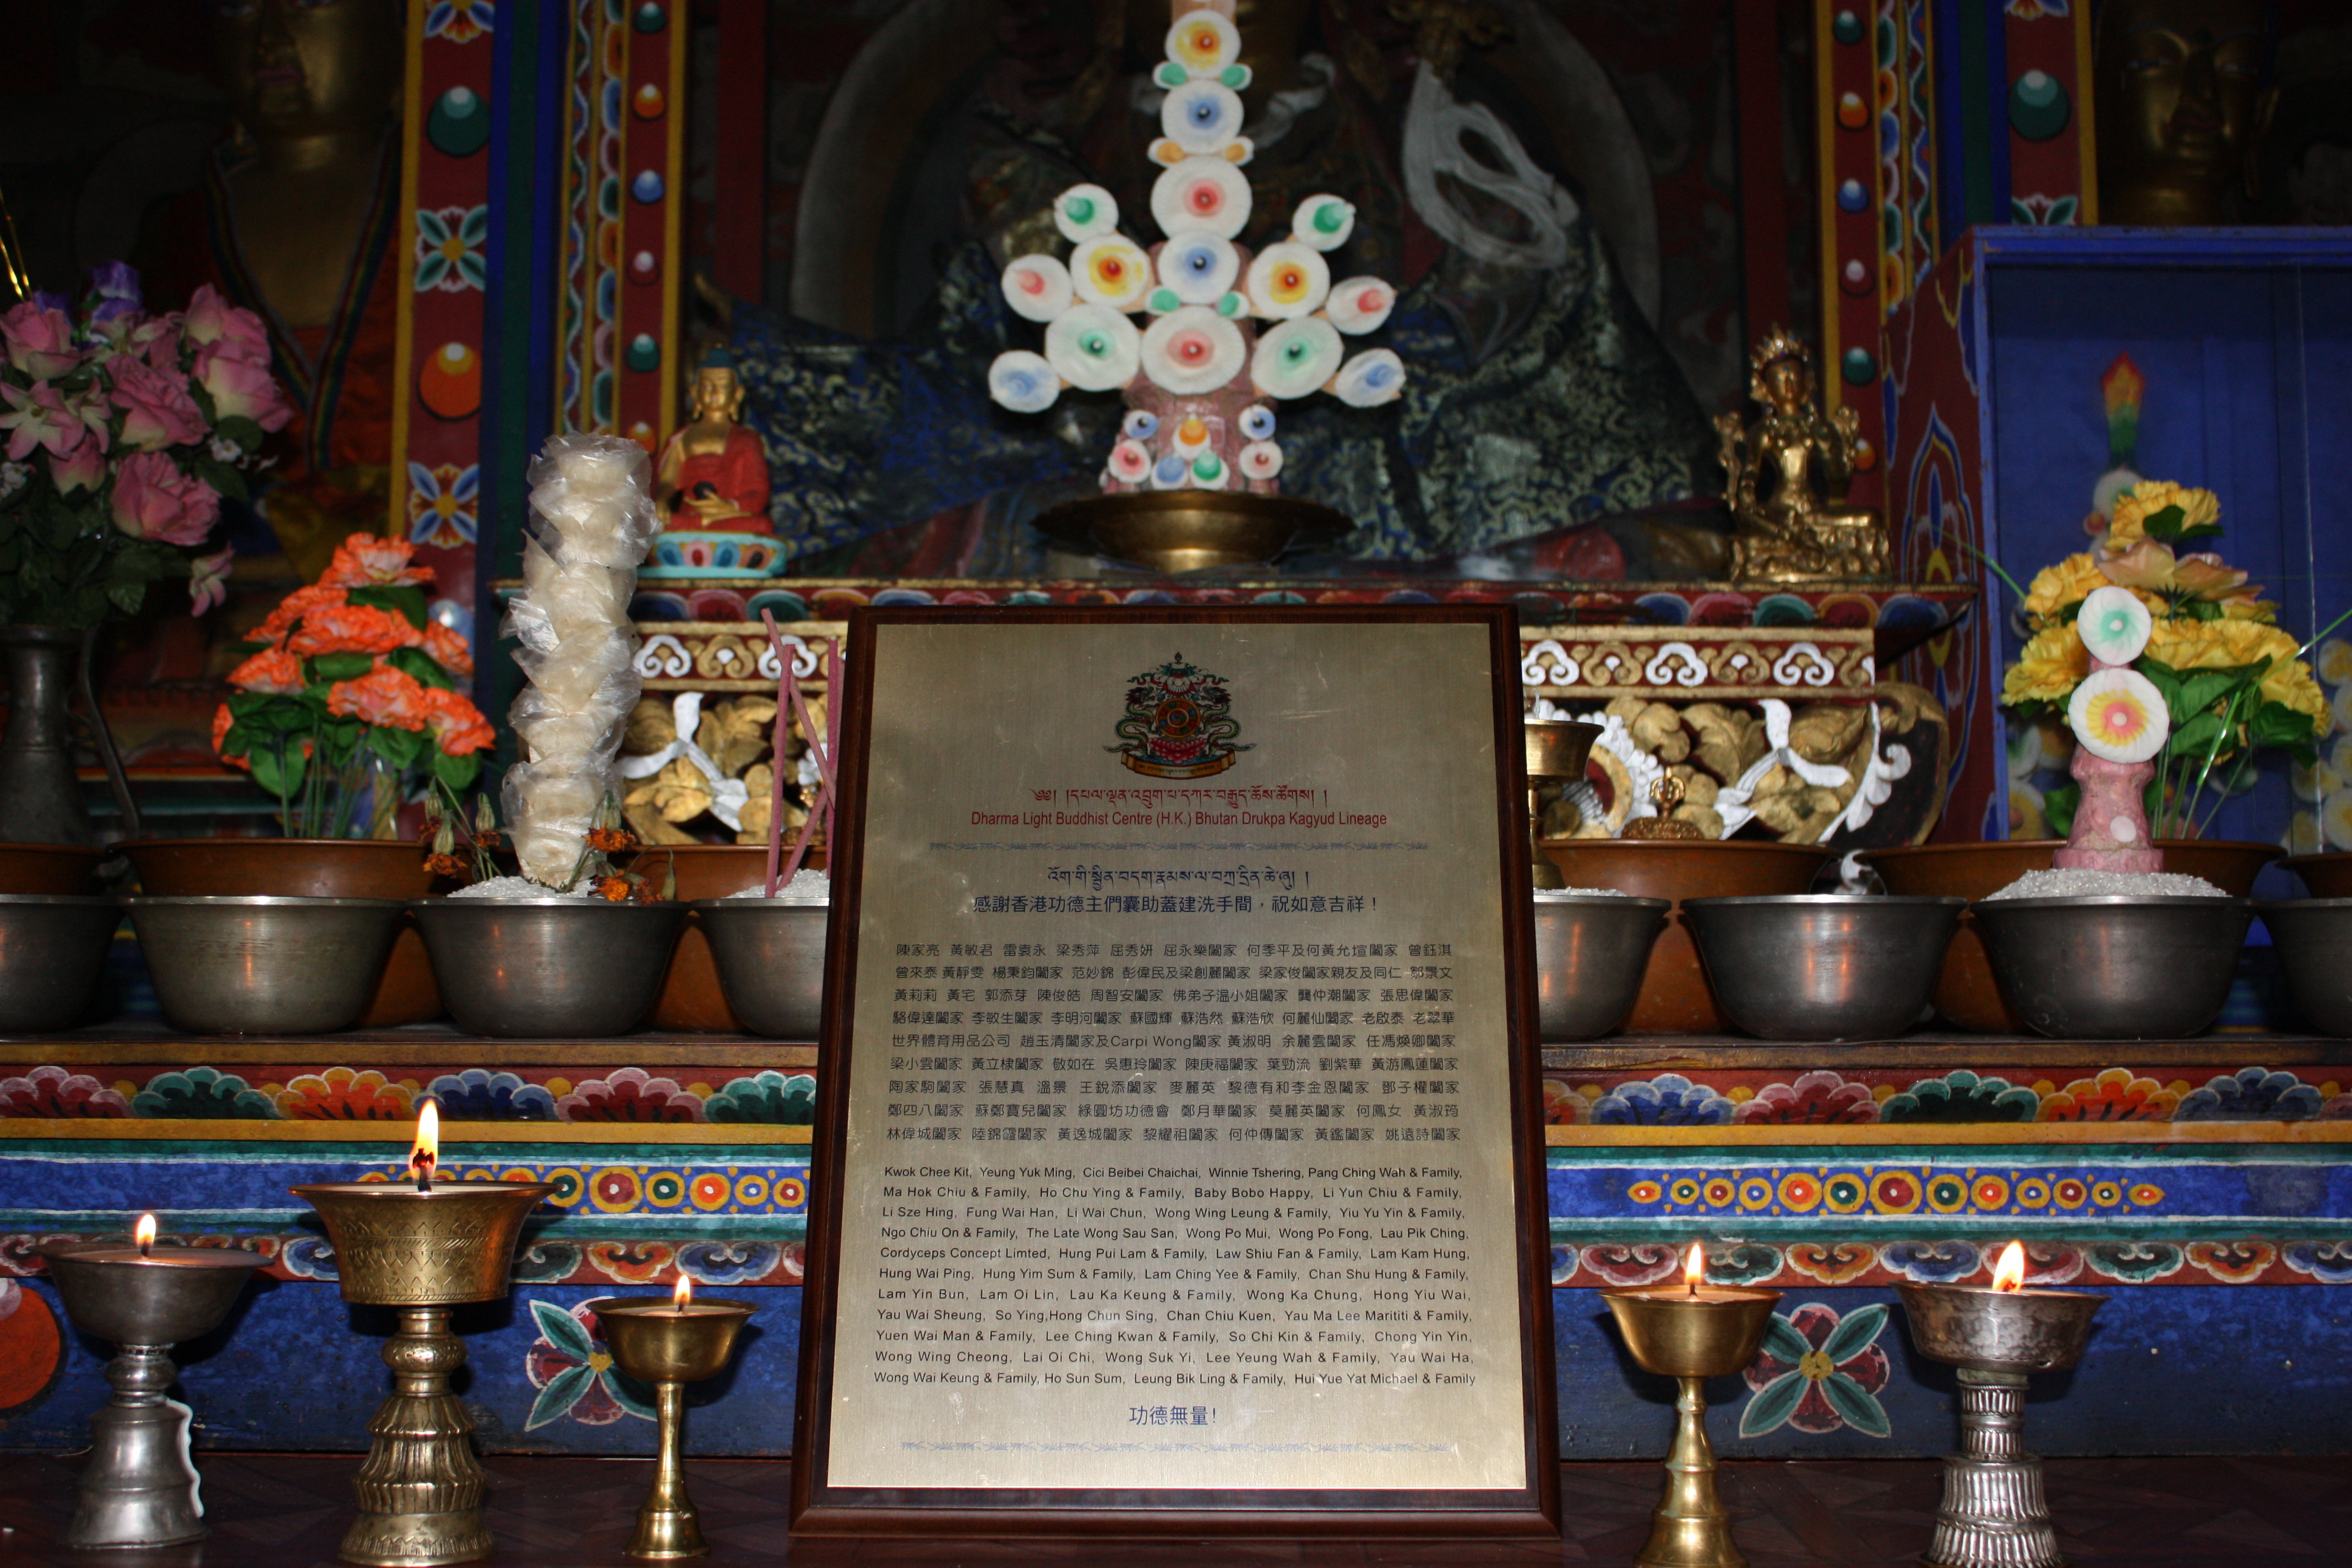 ༄༅། །དཔལ་ལྡན་འབྲུག་པ་དཀར་བརྒྱུད་ཆོས་ཚོགས། །
Dharma Light Buddhist Centre (H.K.) Bhutan Drukpa Kagyud Lineage
འོག་གི་སྦྱིན་བདག་རྣམས་ལ་བཀྲ་དྲིན་ཆེ་ཞུ། །
感謝香港功德主們囊助蓋建洗手間，祝如意吉祥！
陳家亮 黃敏君 雷袁永 梁秀萍 屈秀妍 屈永樂闔家 何季平及何黃允瑄闔家 曾鈺淇
曾來泰 黃靜雯 楊秉鈞闔家 范妙錦 彭偉民及梁創麗闔家 梁家俊闔家親友及同仁 鄒景文
黃莉莉 黃宅 郭添芽 陳俊皓 周智安闔家 佛弟子溫小姐闔家 龔仲潮闔家 張思偉闔家
駱偉達闔家 李敏生闔家 李明河闔家 蘇國輝 蘇浩然 蘇浩欣 何麗仙闔家 老啟泰 老翠華
世界體育用品公司 趙玉清闔家及Carpi Wong闔家 黃淑明 余麗雲闔家 任馮煥卿闔家
梁小雲闔家 黃立棣闔家 敬如在 吳惠玲闔家 陳庚福闔家 葉勁流 劉紫華 黃游鳳蓮闔家
陶家駒闔家 張慧真 溫景 王銳添闔家 麥麗英 黎德有和李金恩闔家 鄧子權闔家
鄭四八闔家 蘇鄭寶兒闔家 綠圓坊功德會 鄭月華闔家 莫麗英闔家 何鳳女 黃淑筠
林偉城闔家 陸錦霞闔家 黃逸城闔家 黎耀祖闔家 何仲傳闔家 黃鑑闔家 姚遠詩闔家
Kwok Chee Kit, Yeung Yuk Ming, Cici Beibei Chaichai, Winnie Tshering, Pang Ching Wah & Family,
Ma Hok Chiu & Family, Ho Chu Ying & Family, Baby Bobo Happy, Li Yun Chiu & Family,
Li Sze Hing, Fung Wai Han, Li Wai Chun, Wong Wing Leung & Family, Yiu Yu Yin & Family,
Ngo Chiu On & Family, The Late Wong Sau San, Wong Po Mui, Wong Po Fong, Lau Pik Ching,
Cordyceps Concept Limted, Hung Pui Lam & Family, Law Shiu Fan & Family, Lam Kam Hung,
Hung Wai Ping, Hung Yim Sum & Family, Lam Ching Yee & Family, Chan Shu Hung & Family,
Lam Yin Bun, Lam Oi Lin, Lau Ka Keung & Family, Wong Ka Chung, Hong Yiu Wai,
Yau Wai Sheung, So Ying,Hong Chun Sing, Chan Chiu Kuen, Yau Ma Lee Marititi & Family,
Yuen Wai Man & Family, Lee Ching Kwan & Family, So Chi Kin & Family, Chong Yin Yin,
Wong Wing Cheong, Lai Oi Chi, Wong Suk Yi, Lee Yeung Wah & Family, Yau Wai Ha,
Wong Wai Keung & Family, Ho Sun Sum, Leung Bik Ling & Family, Hui Yue Yat Michael & Family
功德無量！